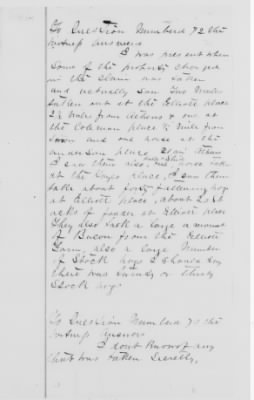 To Question Numberd 72 the
witness answers
I was present when
some of the property charged
in the claim was taken
and actually saw two mules
taken out at the Elliott place
2½ miles from Athens & one at
the Coleman place ½ mile from
town and one horse at the
place
I saw them also one horse
at the place, I saw them
take about forty fattening hogs
at Elliott place, about
of fodder at Elliott place
They also took a large amount
of Bacon from the Elliott
Farm, also a large Number
of Stock hogs I should say
there was twenty or thirty
Stock hogs
To Question Numberd 73 the
witness answers
I don't know of any
that was taken Secretly.